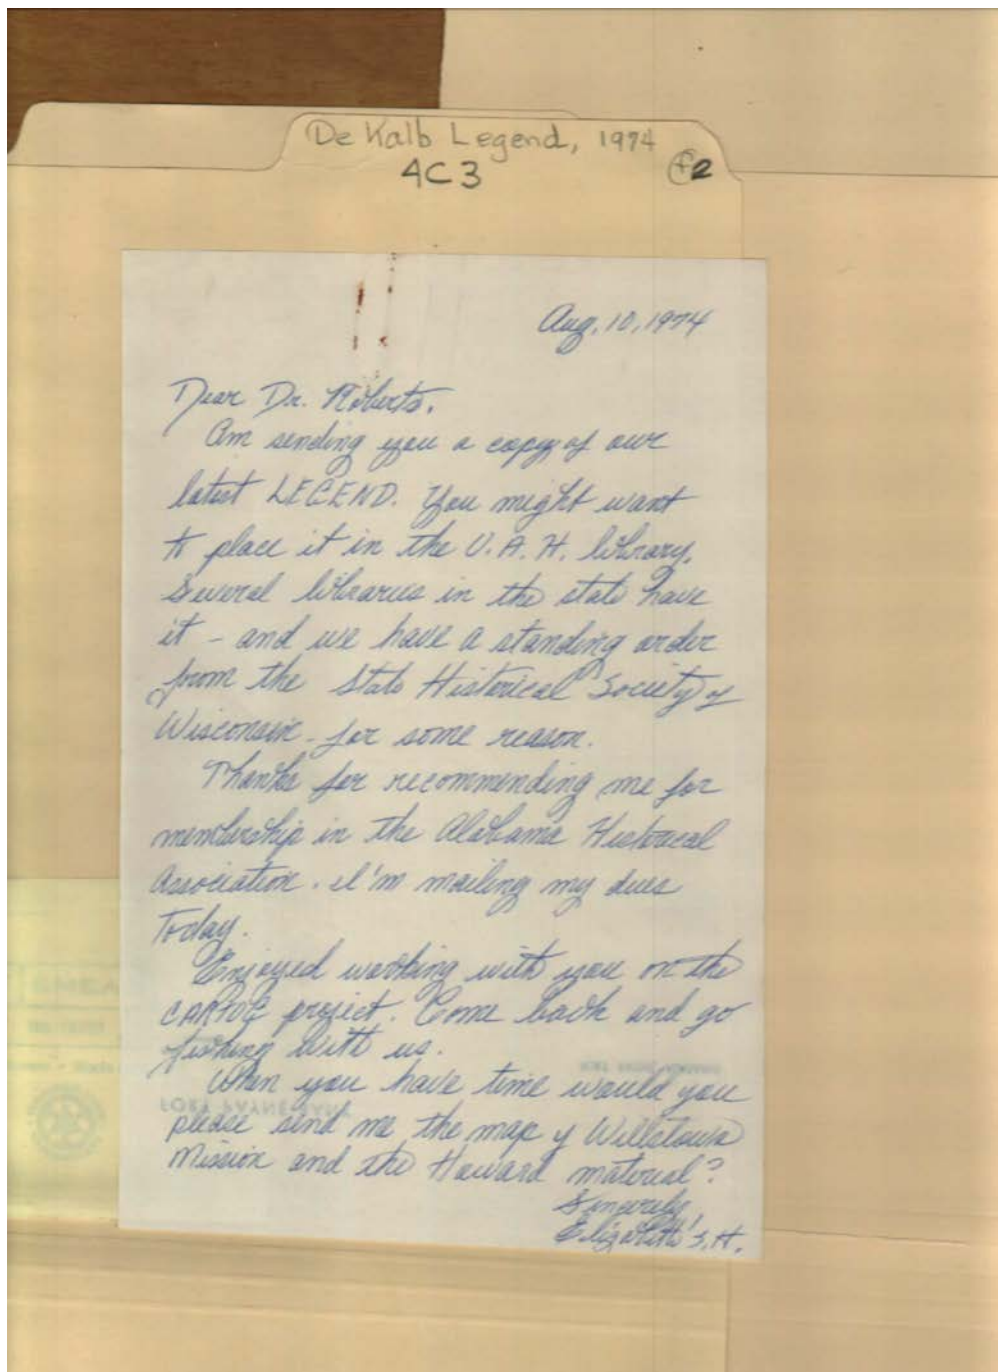 De Kalb Legend, 1974
4C3
f2
Aug. 10, 1974
Dear Dr. Roberts,
Am sending you a copy of our
latest LEGEND. You might want
to place it in the U. A. H. library.
Several libraries in the state have
it - and we have a standing order
from the State Historical Society of
Wisconsin - for some reason.
Thanks for recommending me for
membership in the Alabama Historical
Association. I'm mailing my dues
today.
Enjoyed working with you on the
project. Come back and go
fishing with us.
When you have time would you
please send me the map of Willstown
Mission and the Howard material?
Sincerely,
Elizabeth S. H.
FORT PAYNE BANK